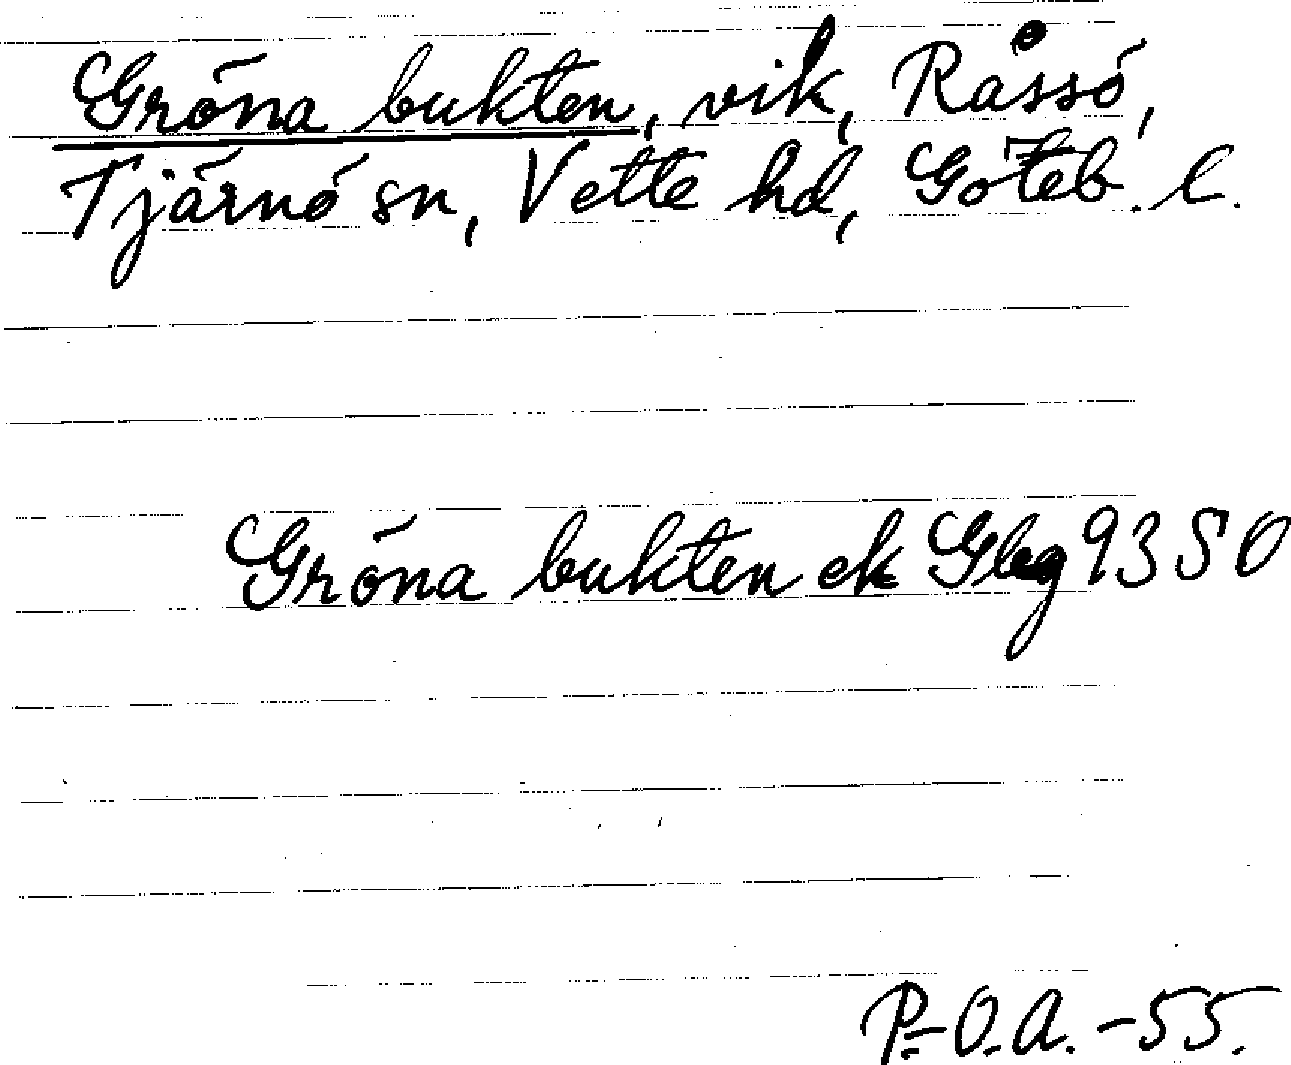 Gröna bukten, vik, Råssö,
Tjärnö sn, Vette hd, Göteb. l.
Gröna bukten ek Gbg 9350
P.-O.A. -55.